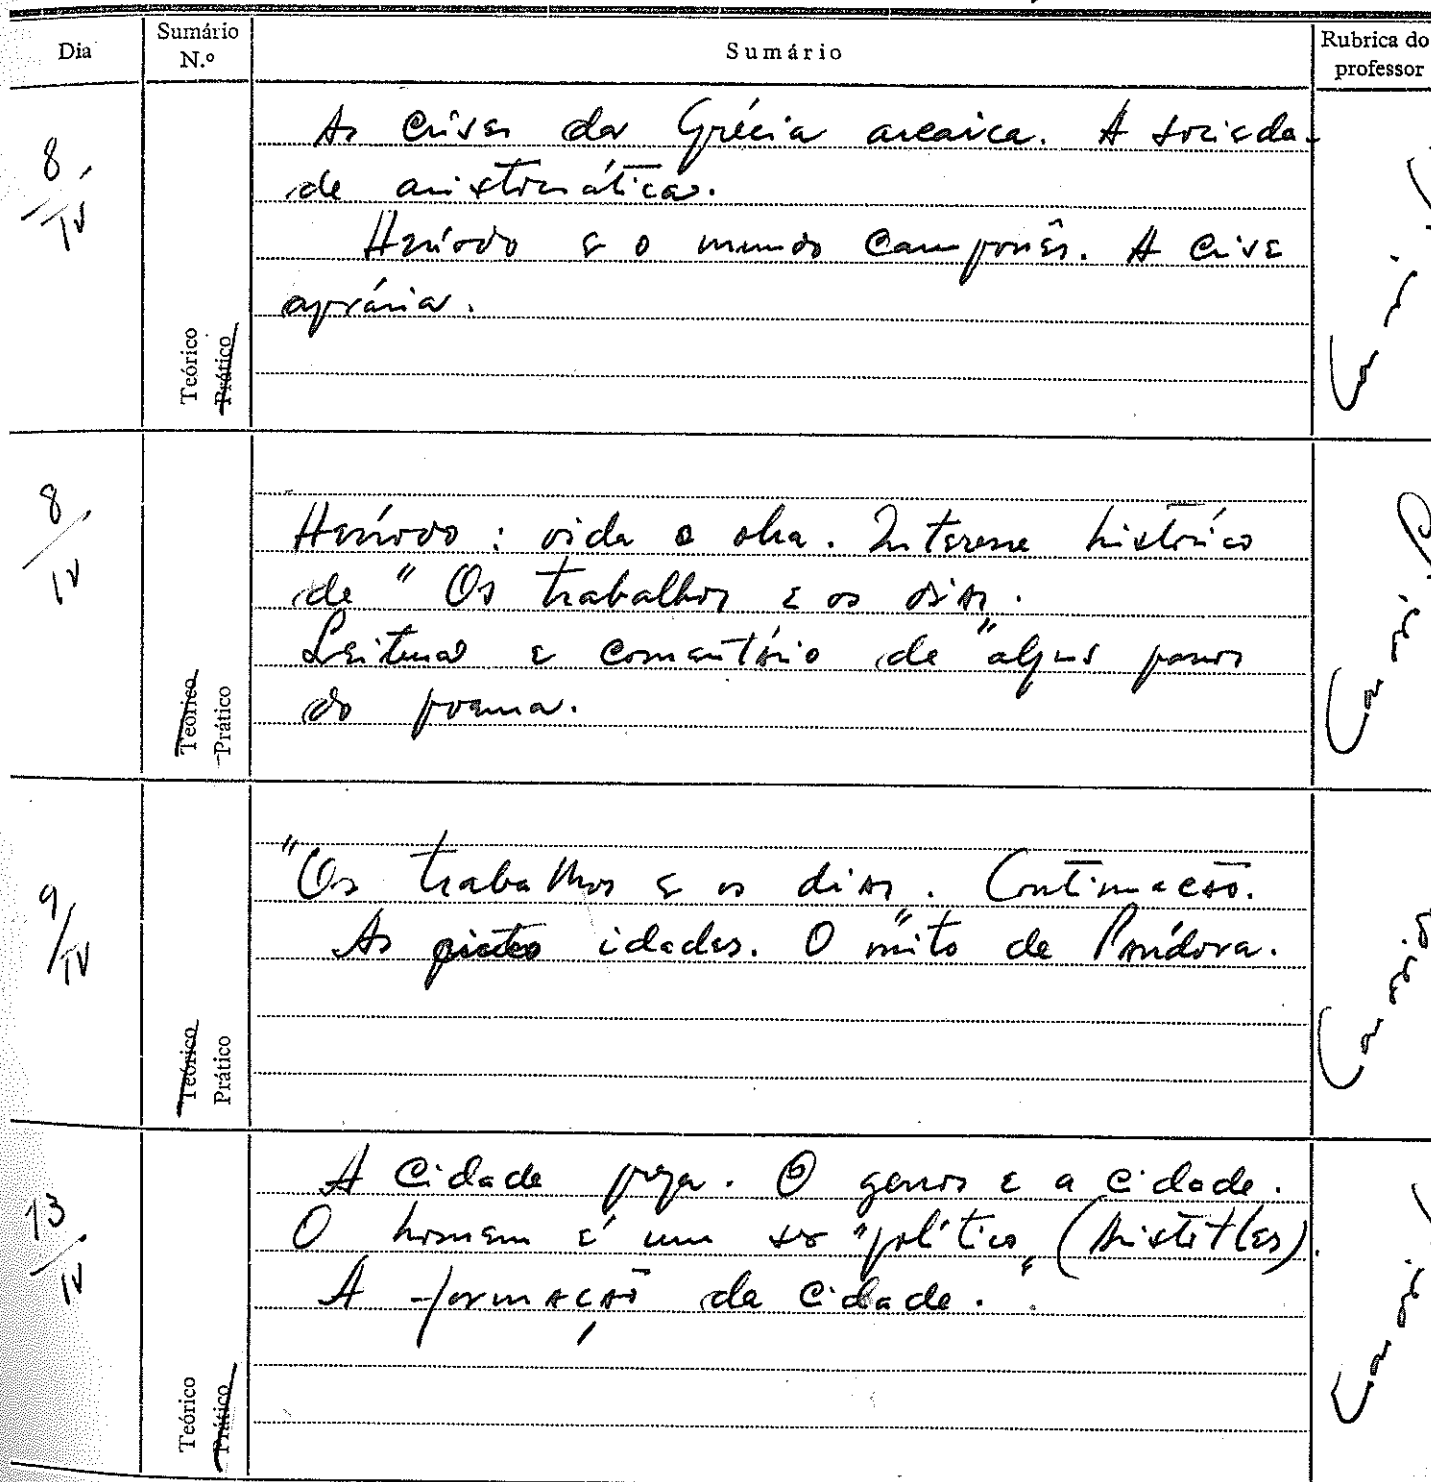 Dia
Sumário
N.º
Sumário
Rubrica do
professor
8/IV
As crises da Grécia arcaica. A socieda-
de aristocrática.
Hesíodo e o mundo camponês. A crise
agrária.
Teórico
Prático
8/IV
Hesíodo: vida e obra. Interesse histórico
de "Os trabalhos e os dias".
Leitura e comentário de alguns passos
do poema.
Teórico
Prático
9/IV
"Os trabalhos e os dias". Continuação.
As idades. O mito de Pandora.
Teórico
Prático
13/IV
A cidade grega. O genos e a cidade.
O homem é um ser "político" (Aristóteles).
A formação da cidade.
Teórico
Prático